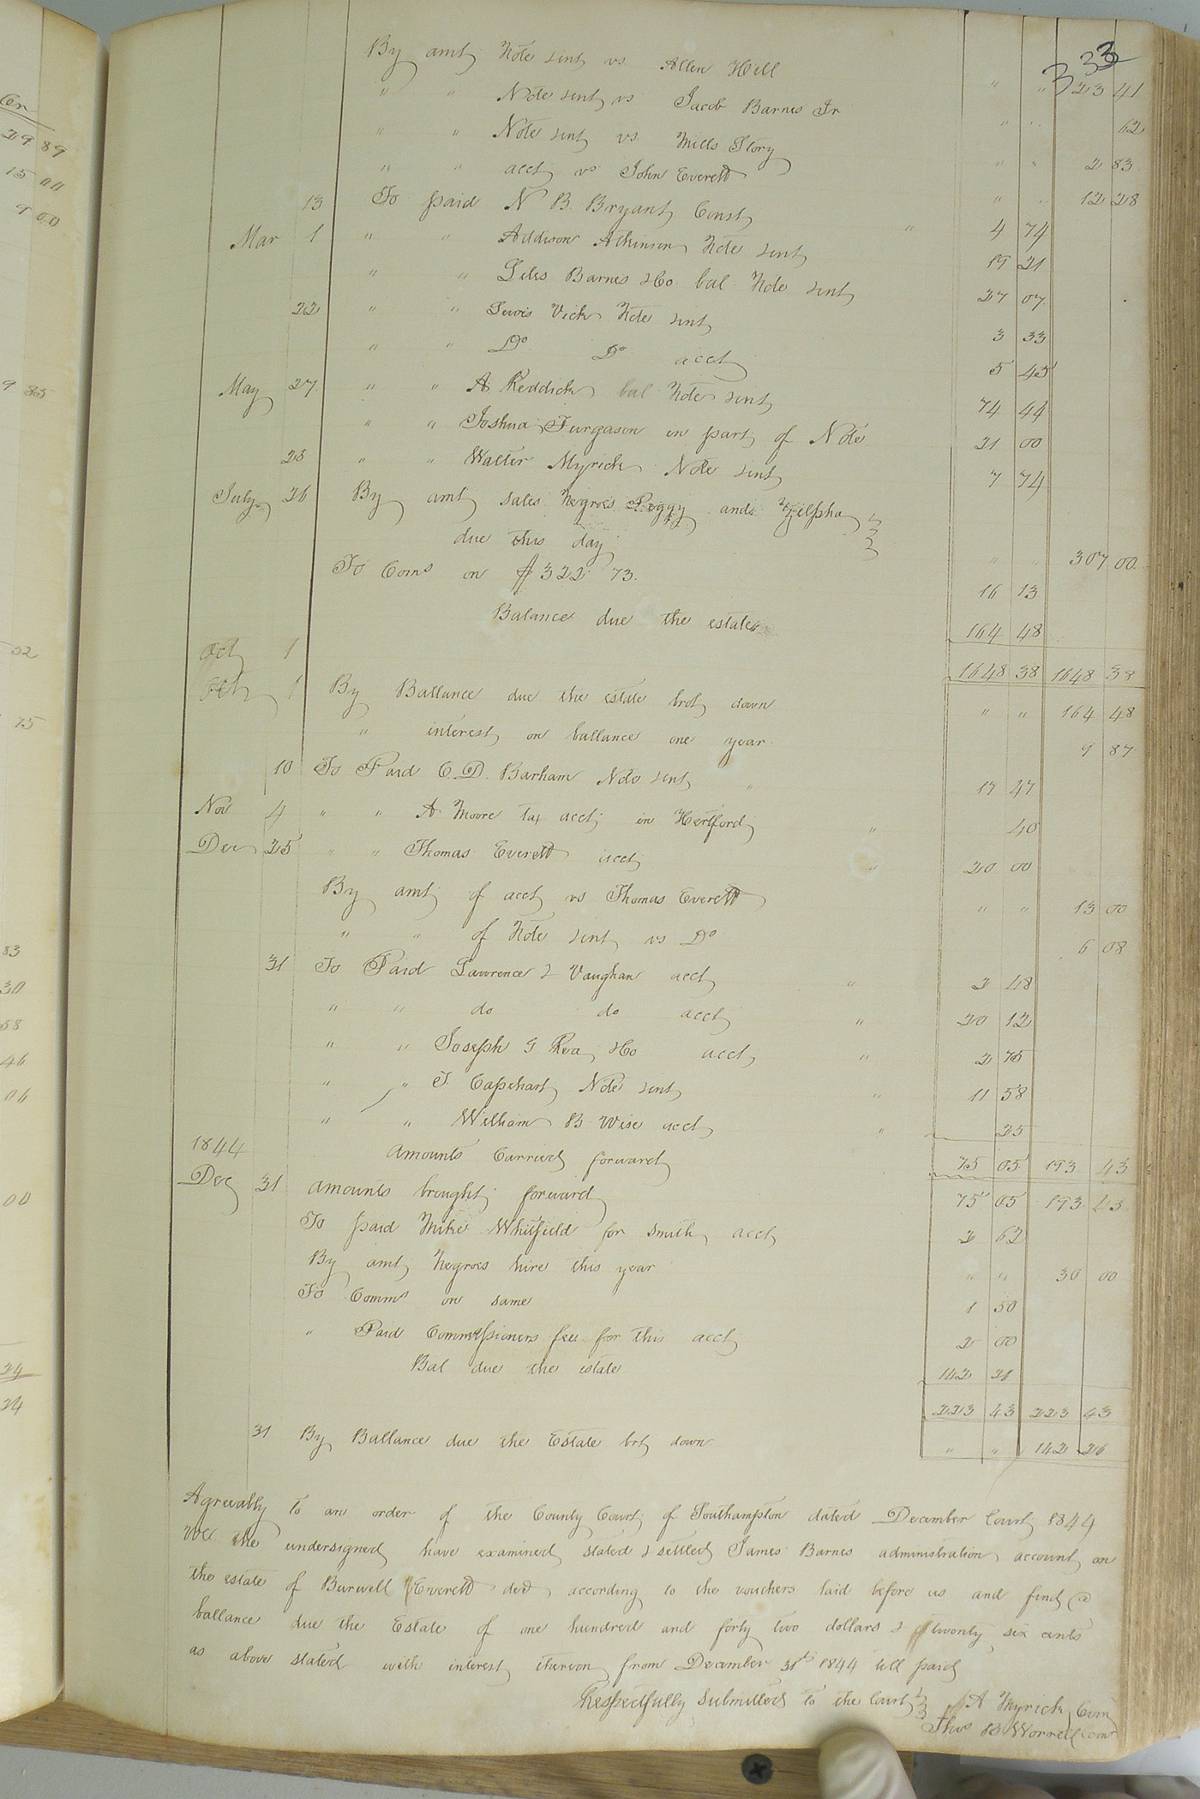 333
By amt Note &int vs Allen Hill " " 23 41
" " Note &int vs Jacob Barnes Jr " " 62
" " Note &int vs Mills Story " " 2 83
" " acct vs John Everett " " 12 28
13 To paid N B. Bryant Const " 4 74
Mar 1 " " Addison Atkinson Note &int 19 21
" " Giles Barnes &Co bal Note &int 27 07
22 " " Lewis Vick Note &int 3 33
" " Do Do acct 5 45
May 27 " " A Reddick bal Note &int 74 44
" " Joshua Furgason in part of Note 21 00
28 " " Walter Myrick Note &int 7 74
July 26 By amt sales Negroes Peggy and Zilpha
due this day " " 307 00
To Coms on $322 73. 16 13
Balance due the estate 164 48
Oct 1 1648 38 1648 38
Feb 1 By Ballance due the estate brot down " " 164 48
" interest on ballance one year 9 87
10 To Paid C. D. Barham Note &int " 17 47
Nov 4 " " A Moore tax acct in Hertford " 40
Dec 25 " " Thomas Everett acct " 20 00
By amt of acct vs Thomas Everett " " 13 00
" " of Note &int vs Do 6 08
31 To Paid Lawrence & Vaughan acct " 2 48
" " do do acct " 20 12
" " Joseph G Rea &Co acct " 2 75
" " T. Capehart Note &int " 11 58
" " William B Wise acct " 25
1844 Amounts Carried forward 75 05 193 43
Dec 31 Amounts brought forward 75 05 193 43
To paid Mike Whitfield for Smith acct 2 62
By amt Negroes hire this year " " 30 00
To Comms on same 1 50
" Paid Commissioners fee for this acct 2 00
Bal due the estate 142 21
223 43 223 43
31 By Ballance due the Estate brt down " " 142 26
Agreeably to an order of the County Court of Southampton dated December Court 1844
We the undersigned have examined stated & settled James Barnes administration account on
the estate of Burwell Everett decd according to the vouchers laid before us and find a
ballance due the Estate of one hundred and forty two dollars & twenty six cents
as above stated with interest thereon from December 31st 1844 till paid
Respectfully Submitted to the Court A Myrick Com
Thos B Worrell com